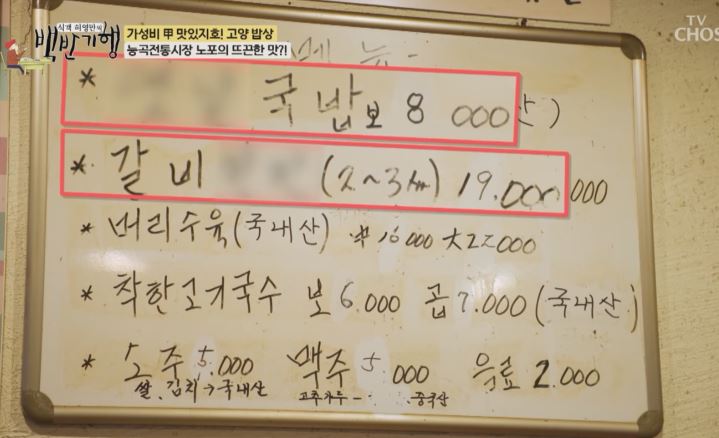 식객 허영만의
백반기행
가성비 甲 맛있지호! 고양 밥상
능곡전통시장 노포의 뜨끈한 맛?!
TV CHOS
메뉴
* 국밥 보 8 000 산)
* 갈비 (2~3人) 19.000 000
* 머리수육(국내산) 中 16000 大22000
* 착한고기국수 보 6.000 곱 7.000 (국내산)
* 소주 5.000 맥주 5 000 음료 2.000
쌀, 김치→국내산 고추가루 - 중국산